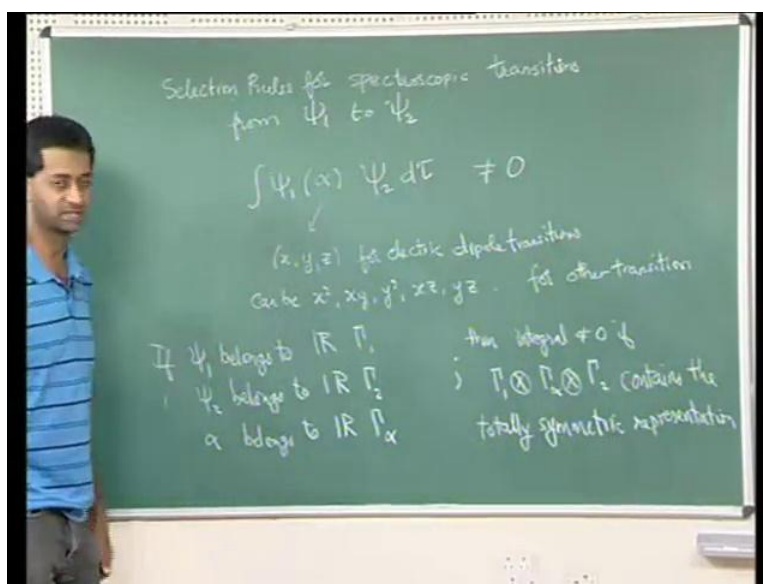 Selection Rules for spectroscopic transitions
from Ψ₁ to Ψ₂
∫Ψ₁(α) Ψ₂ dτ ≠ 0
(x, y, z) for electric dipole transitions
can be x², xy, y², xz, yz. for other transition
If Ψ₁ belongs to IR Γ₁ then integral ≠ 0 if
Ψ₂ belongs to IR Γ₂ ; Γ₁ ⊗ Γα ⊗ Γ₂ contains the
α belongs to IR Γα totally symmetric representation